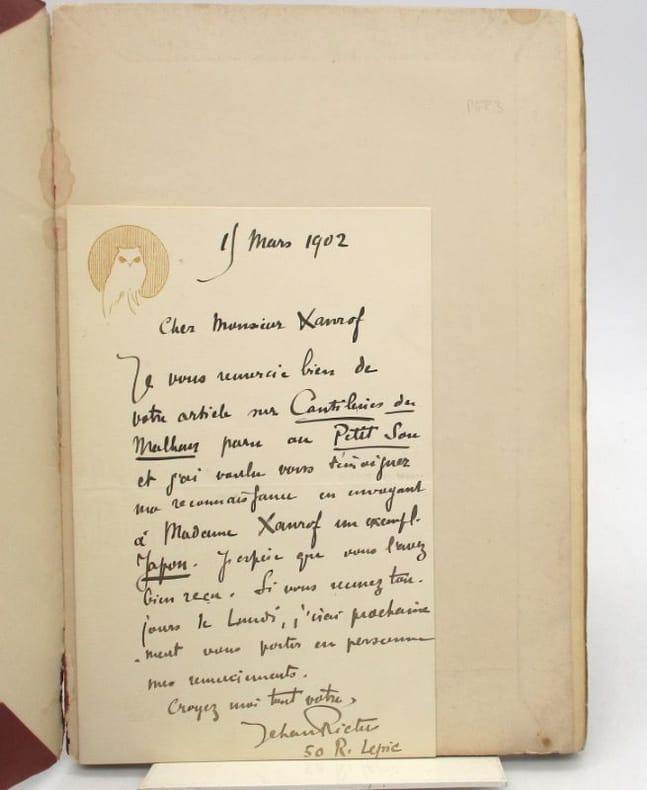 15 Mars 1902
Cher Monsieur Xanrof
Je vous remercie bien de
votre article sur Cantilènes du
Malheur paru au Petit Sou
et j'ai voulu vous témoigner
ma reconnaissance en envoyant
à Madame Xanrof un exempl.
Japon. J'espère que vous l'avez
bien reçu. Si vous recevez tou-
jours le Lundi, j'irai prochaine
-ment vous porter en personne
mes remerciements.
Croyez moi tout vôtre,
Jehan Rictus
50 R. Lepic